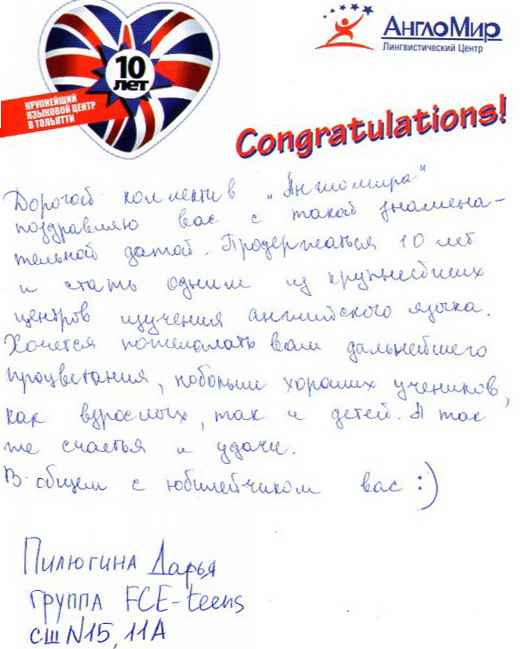 10
ЛЕТ
КРУПНЕЙШИЙ
ЯЗЫКОВОЙ ЦЕНТР
В ТОЛЬЯТТИ
АнглоМир
Лингвистический Центр
Congratulations!
Дорогой коллектив „Англомира"
поздравляю вас с такой знамена-
тельной датой. Продержаться 10 лет
и стать одним из крупнейших
центров изучения английского языка.
Хочется пожелать вам дальнейшего
процветания, побольше хороших учеников,
как взрослых, так и детей. А так
же счастья и удачи.
В общем с юбилейчиком вас :)
Пилюгина Дарья
группа FCE-teens
СШ N15, 11А